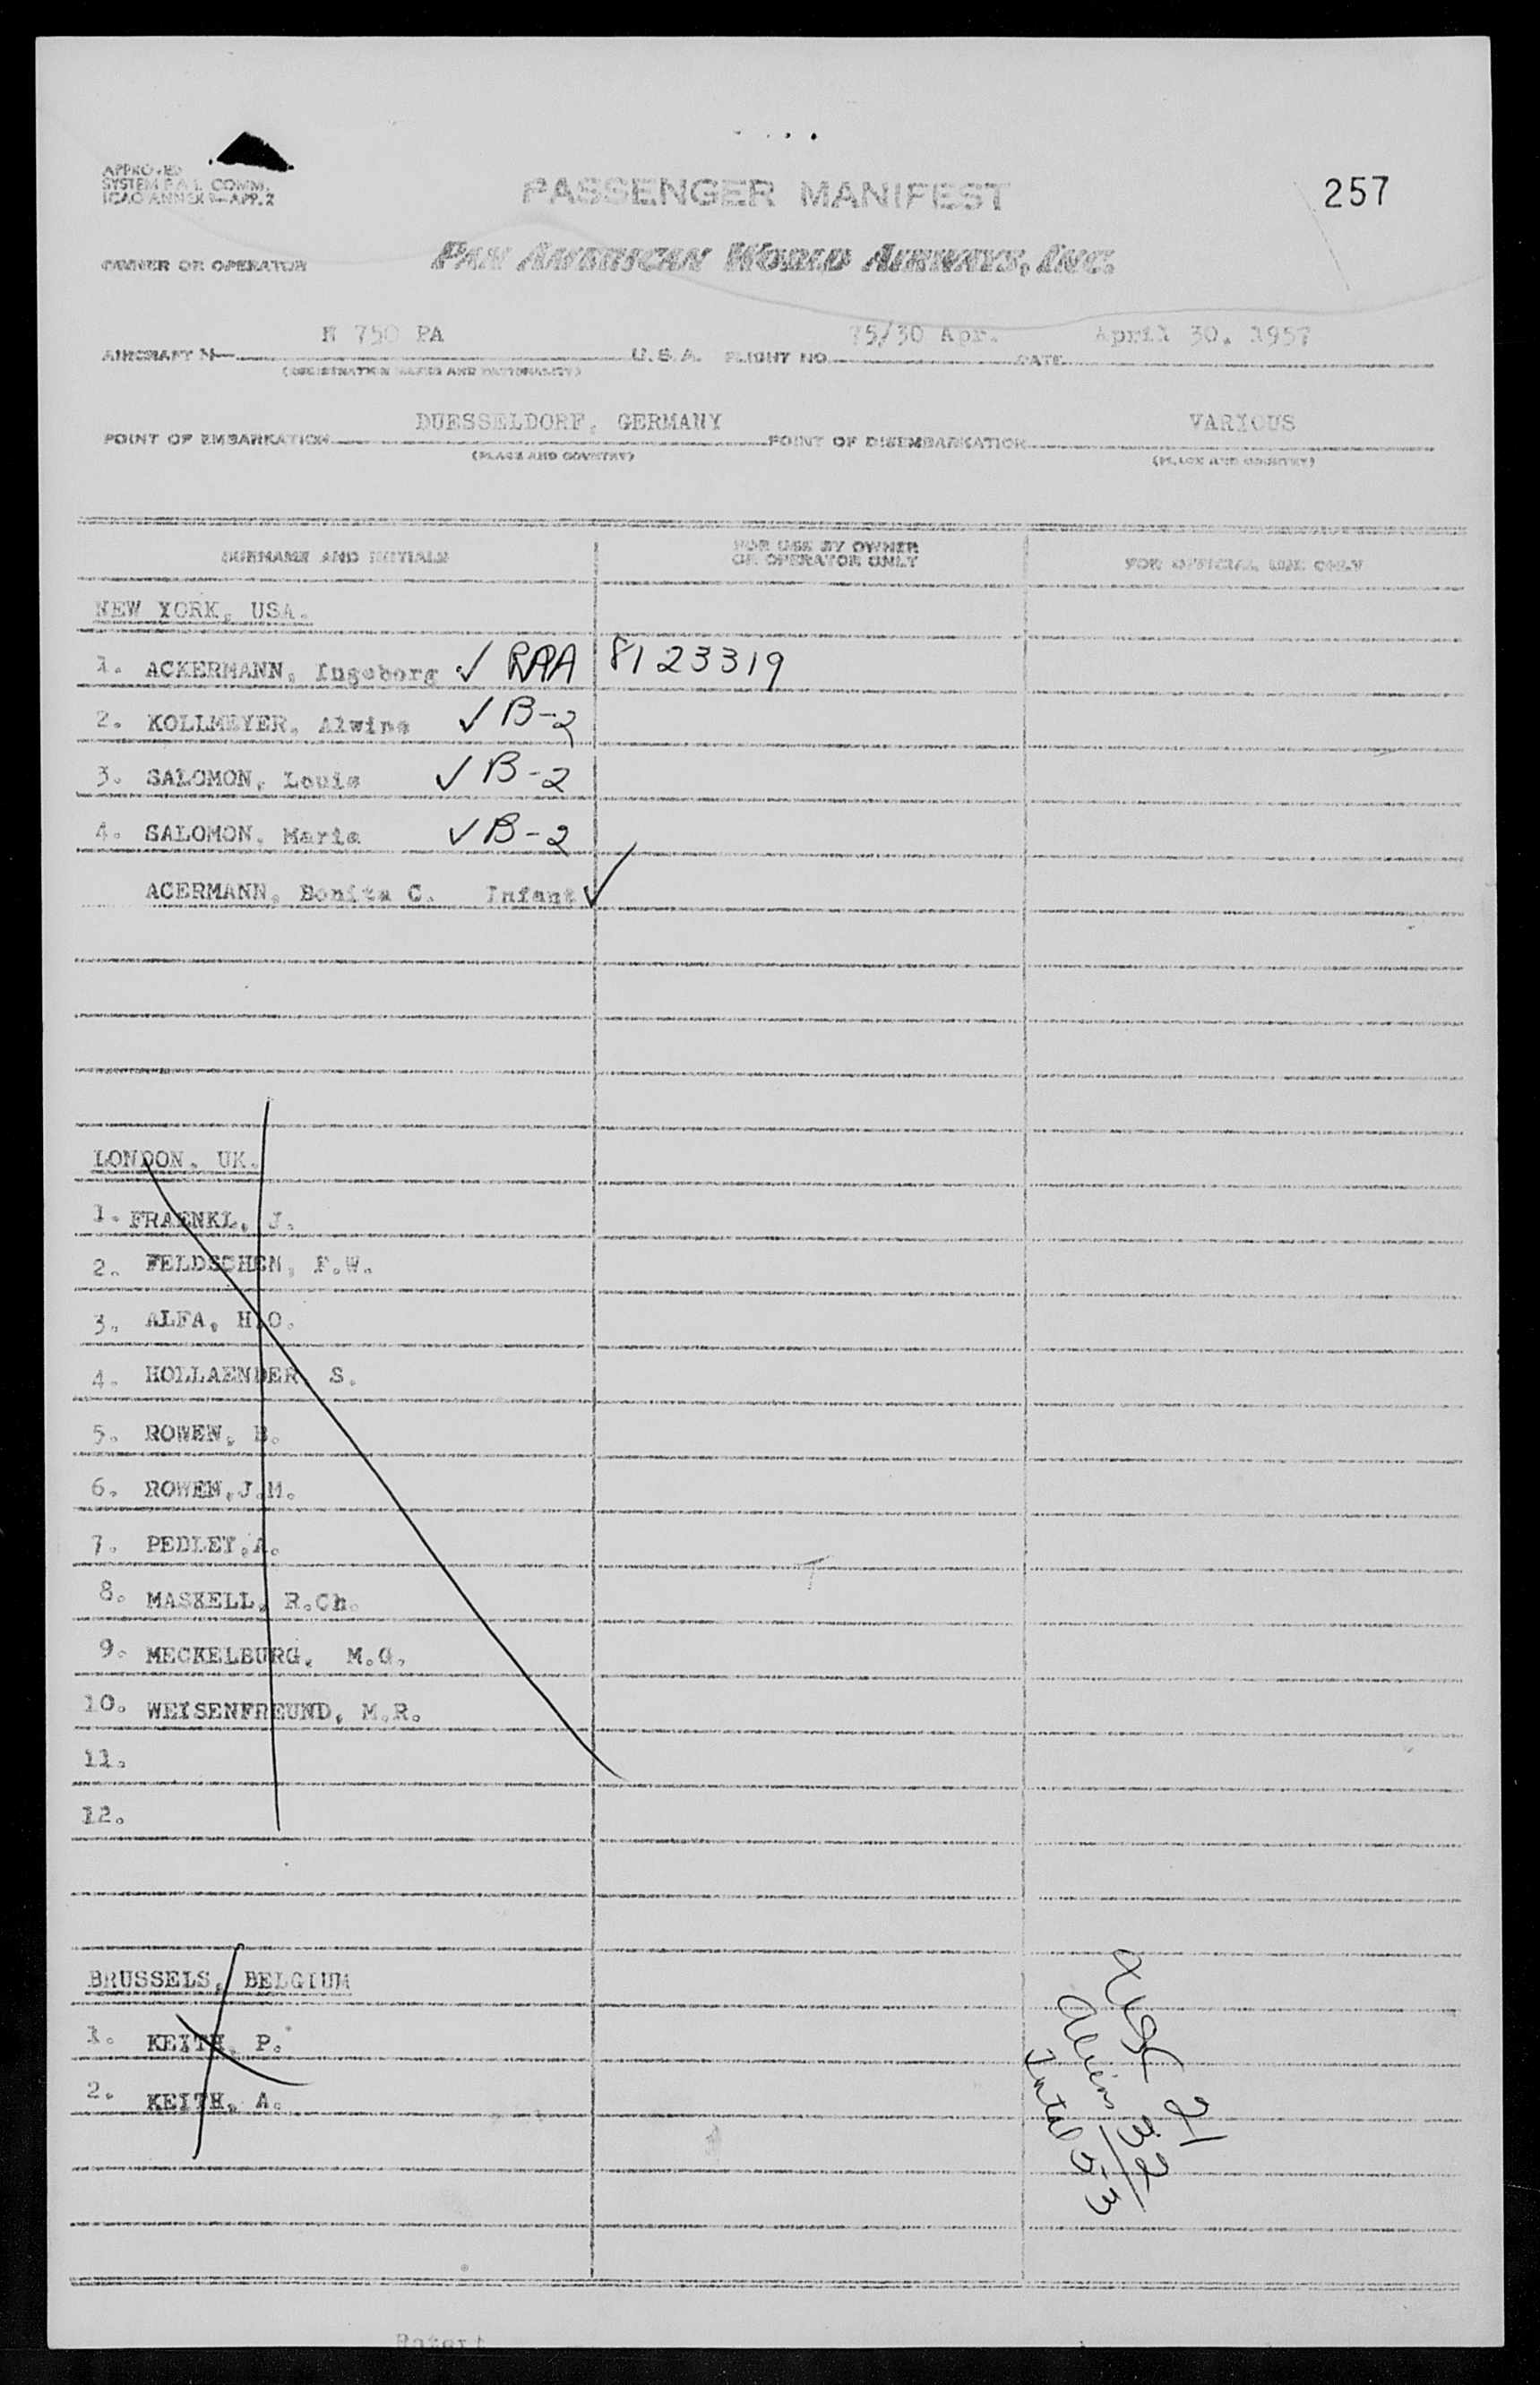 APPROVED
SYSTEM F.A.L. COMM.
ICAO ANNEX 9—APP. 2
PASSENGER MANIFEST
257
OWNER OR OPERATOR
PAN AMERICAN WORLD AIRWAYS, INC.
AIRCRAFT N— N 750 PA U. S. A. FLIGHT NO. 75/30 Apr. DATE April 30. 1957
(REGISTRATION MARKS AND NATIONALITY)
POINT OF EMBARKATION DUESSELDORF, GERMANY POINT OF DISEMBARKATION VARIOUS
(PLACE AND COUNTRY) (PLACE AND COUNTRY)
SURNAME AND INITIALS FOR USE BY OWNER OR OPERATOR ONLY FOR OFFICIAL USE ONLY
NEW YORK, USA.
1. ACKERMANN, Ingeborg ✓ RAA 8123319
2. KOLLMEYER, Alwine ✓ B-2
3. SALOMON, Louis ✓ B-2
4. SALOMON, Maria ✓ B-2
ACERMANN, Bonita C. Infant ✓
LONDON, UK.
1. FRAENKL, J.
2. FELDSCHEN, F.W.
3. ALFA, H.O.
4. HOLLAENDER, S.
5. ROWEN, B.
6. ROWEN,J.M.
7. PEDLEY,A.
8. MASKELL, R.Ch.
9. MECKELBURG, M.G.
10. WEISENFREUND, M.R.
11.
12.
BRUSSELS, BELGIUM
1. KEITH, P.
2. KEITH, A.
21
Alien 32
Total 53